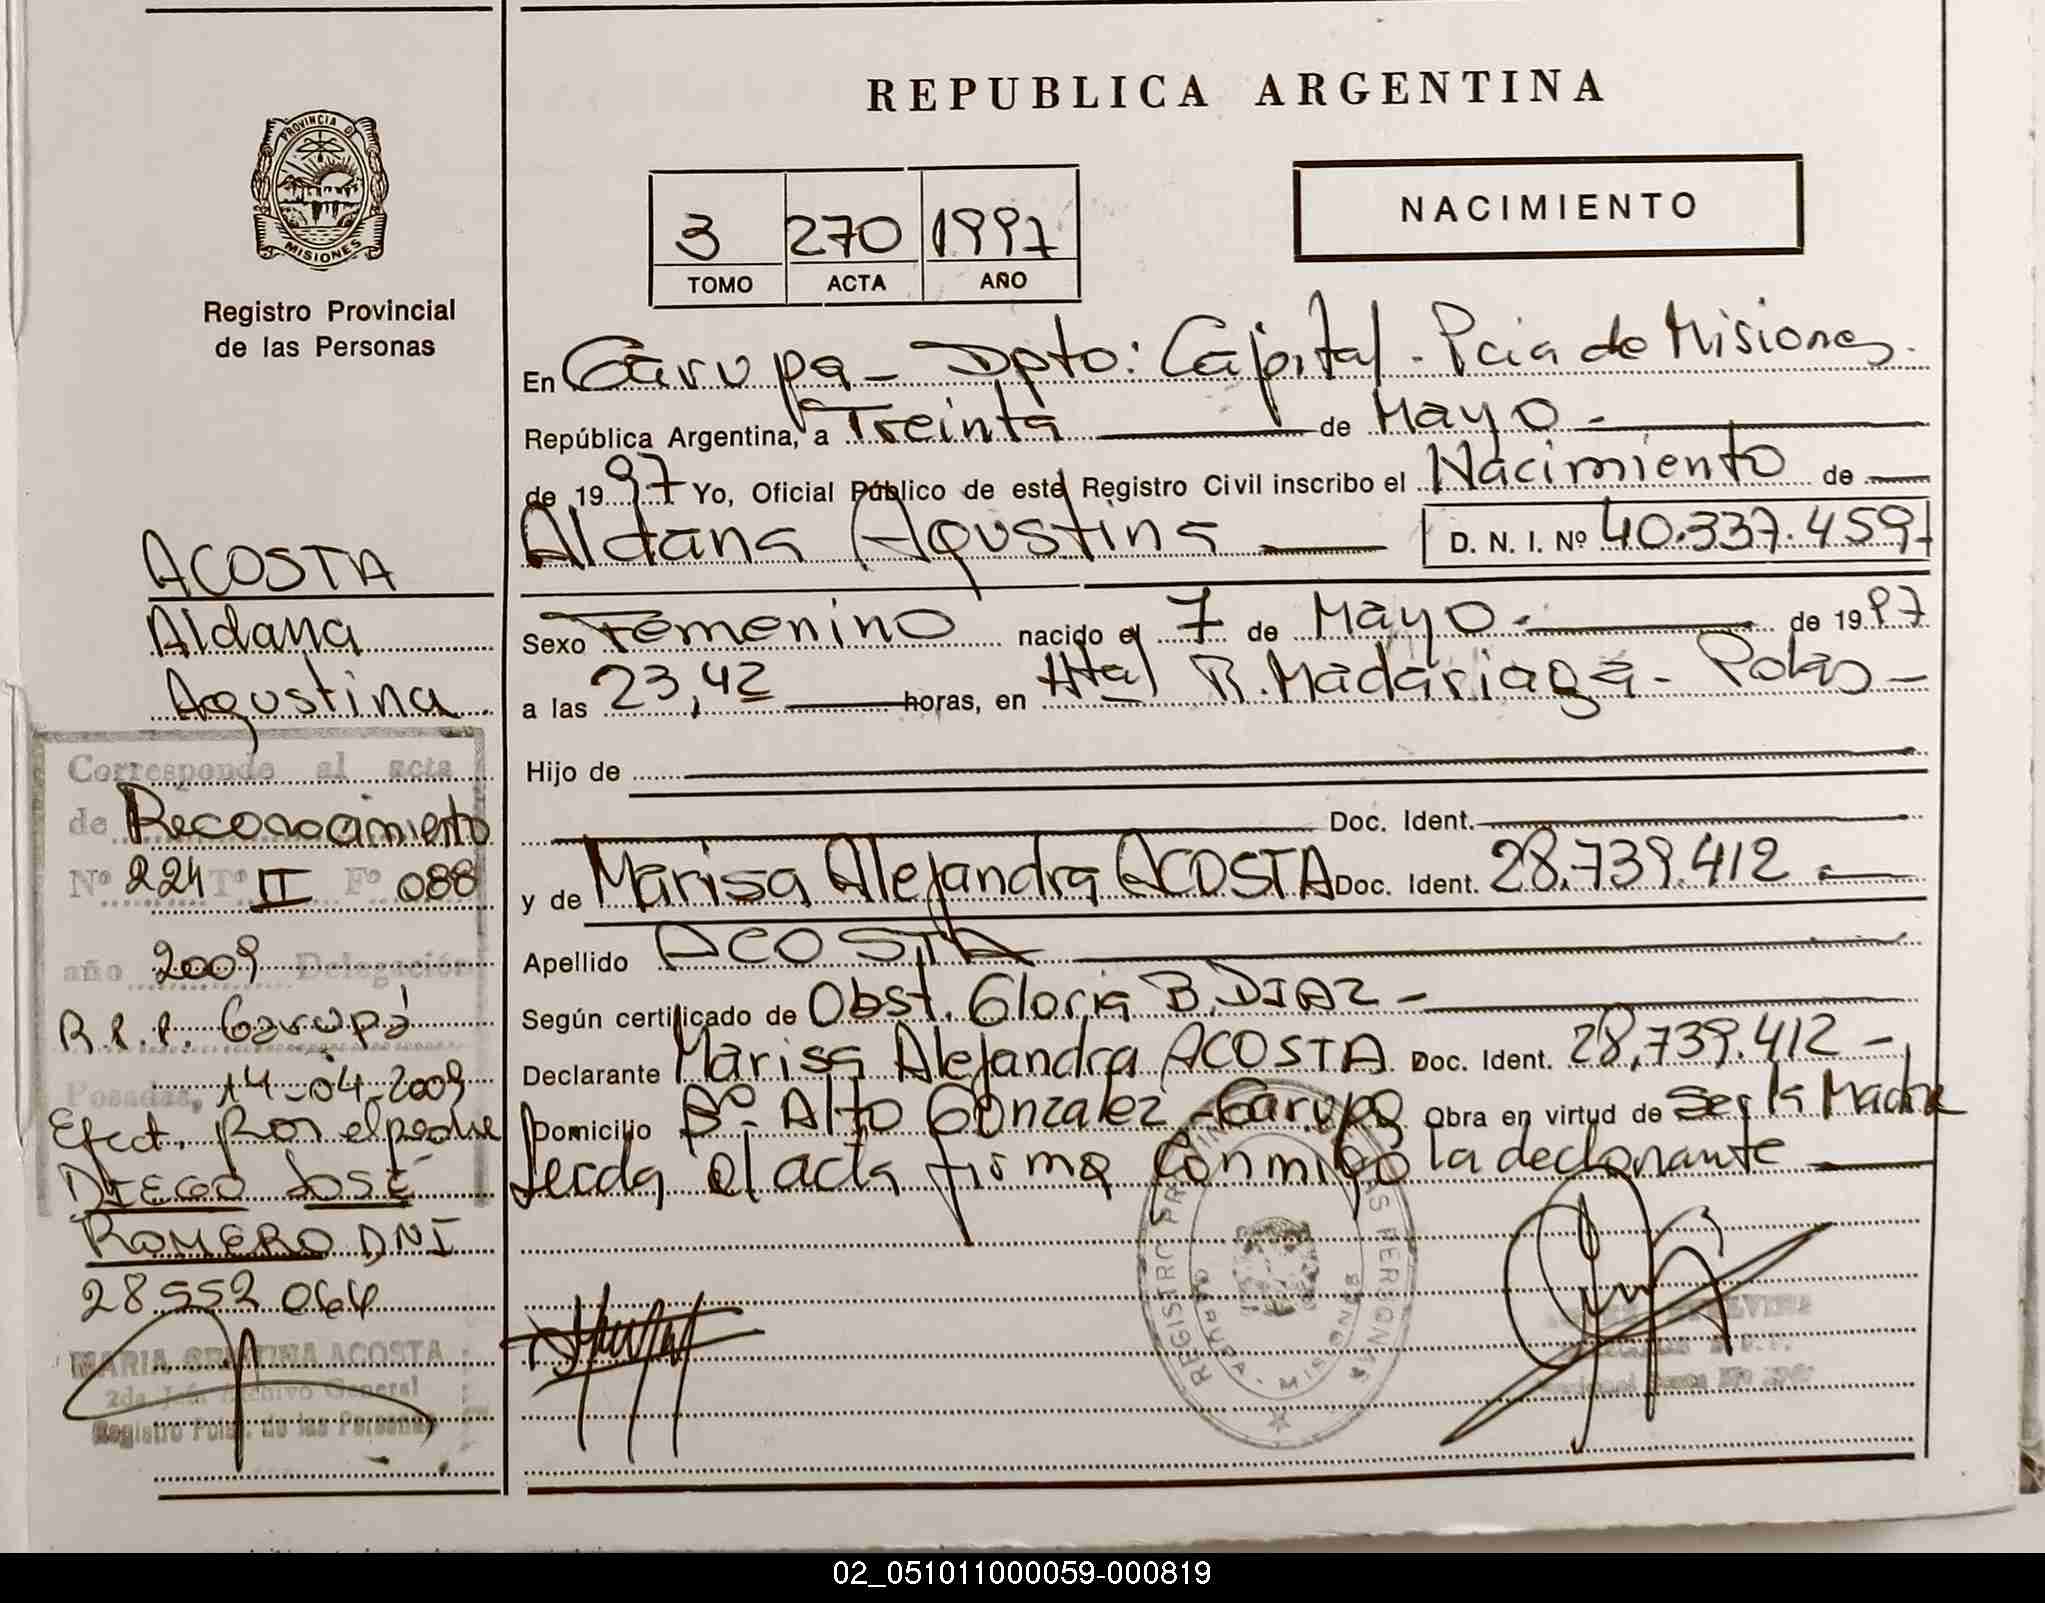 REPUBLICA ARGENTINA
PROVINCIA D
MISIONES
Registro Provincial
de las Personas
3 270 1997
TOMO ACTA AÑO
NACIMIENTO
En Garupa - Dpto: Capital - Pcia de Misiones.
República Argentina, a Treinta de Mayo -
de 1997 Yo, Oficial Público de este Registro Civil inscribo el Nacimiento de
Aldana Agustina D. N. I. Nº 40.337.459
Sexo Femenino nacido el 7 de Mayo - de 1997
a las 23,42 horas, en Htal R. Madariaga - Pdas -
Hijo de
Doc. Ident.
y de Marisa Alejandra ACOSTA Doc. Ident. 28.739.412 -
Apellido ACOSTA
Según certificado de Obst. Gloria B. DIAZ -
Declarante Marisa Alejandra ACOSTA Doc. Ident. 28.739.412 -
Domicilio Bº Alto Gonzalez - Garupa Obra en virtud de Ser la Madre
Leida el acta firma conmigo la declarante
REGISTRO PERSONAS
MISIONES
ACOSTA
Aldana
Agustina
Corresponde al acta
de Reconocimiento
Nº 224 Tº II Fº 088
año 2009 Delegación
R.P.P. Garupá
Posadas, 14-04-2009
Efect. por el padre
DIEGO JOSÉ
ROMERO DNI
28 552 064
MARIA CRISTINA ACOSTA
2da Jef. Archivo General
Registro Pcial. de las Personas
02_051011000059-000819